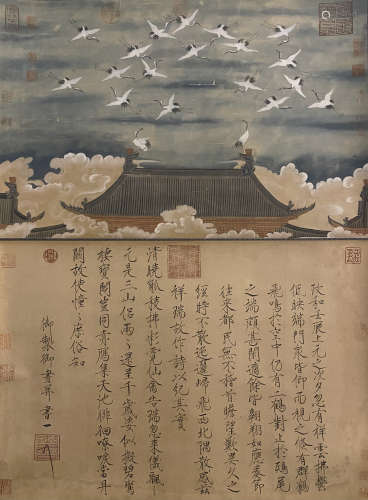 政和壬辰上元之次夕忽有祥雲拂鬱
低映端門衆皆仰而視之倏有群鶴
飛鳴於空中仍有二鶴對止於鴟尾
之端頗甚閒適餘皆翱翔如應奏節
往來都民無不稽首瞻望歎異久之
經時不散迤邐歸飛西北隅散感茲
祥瑞故作詩以紀其實
清曉觚稜拂彩霓仙禽告瑞忽來儀飄
元是三山侶兩々還呈千歲姿似擬碧鸞
棲寶閣豈同赤鴈集天池徘徊嘹唳當丹
闕故使憧々庶俗知
御製御畫并書